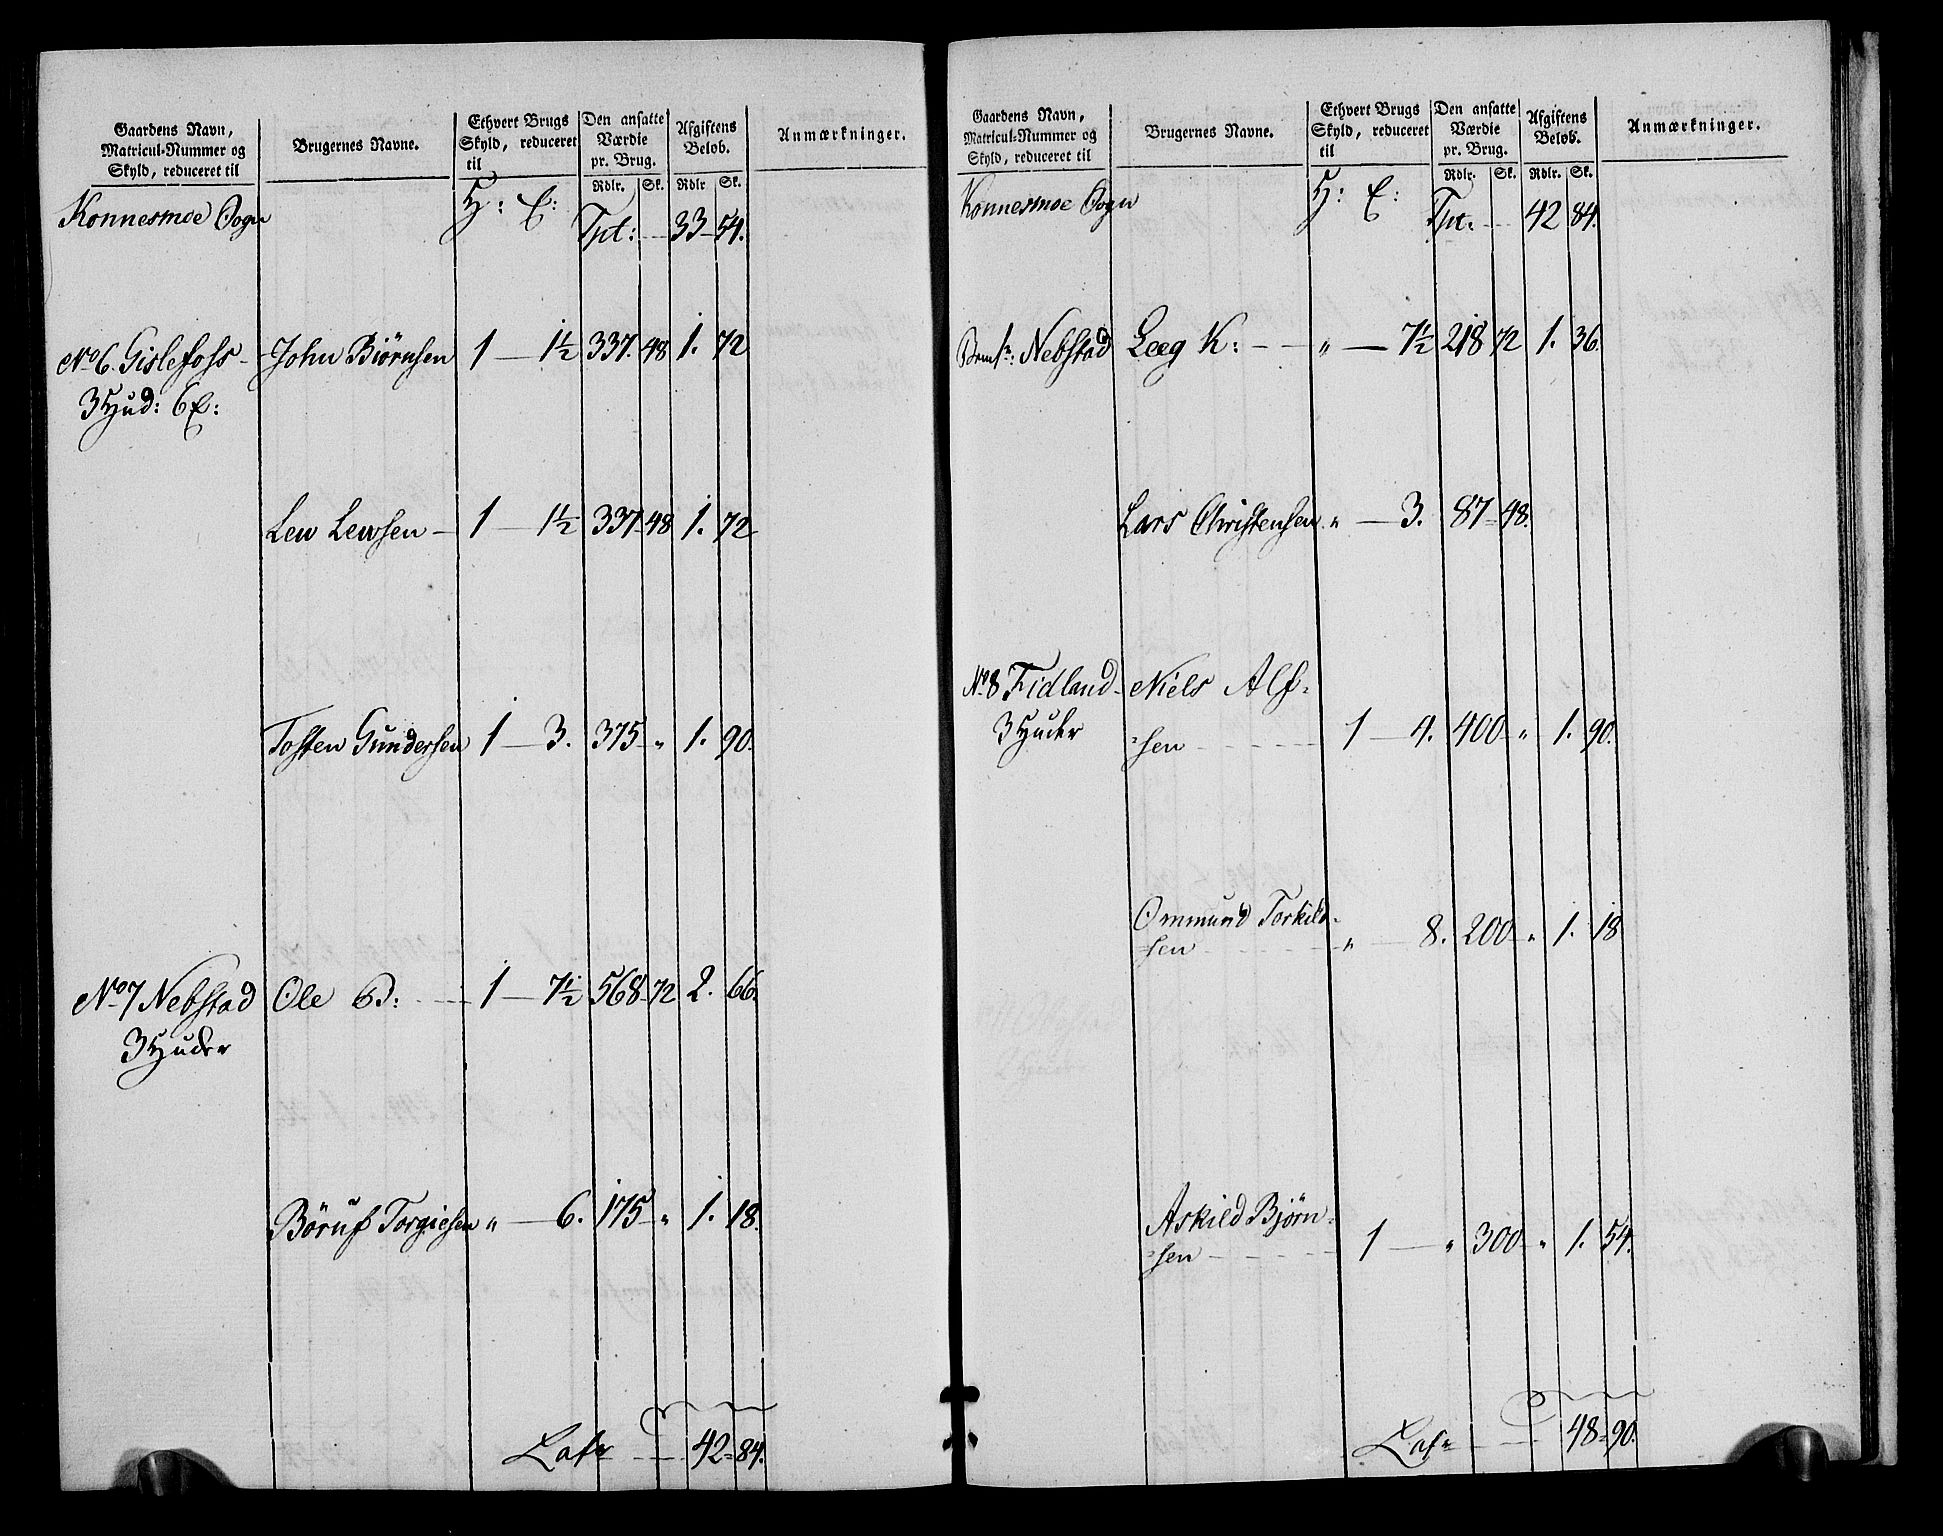 Gaardens Navn, Matricul-Nummer og Skyld, reduceret til | Brugernes Navne. | Ethvert Brugs Skyld, reduceret til | Den ansatte Værdie pr. Brug. | Afgiftens Beløb. | Anmærkninger.
Rdlr. Sk. Rdlr Sk.
Konnesmoe Sogn H: E: Tpt: 33 54.
No 6. Gislefoss John Biørnsen 1 — 1½ 337. 48 1. 72
3 Hud: 6 E:
Lew Lewsen — 1 — 1½ 337. 48 1. 72
Tosten Gundersen 1 — 3. 375 " 1. 90.
No 7 Nebstad Ole B: 1 — 7½ 568 72 2. 66.
3 Huder
Børuf Torgiesen " — 6. 175 " 1. 18.
Latr 42 = 84.
Gaardens Navn, Matricul-Nummer og Skyld, reduceret til | Brugernes Navne. | Ethvert Brugs Skyld, reduceret til | Den ansatte Værdie pr. Brug. | Afgiftens Beløb. | Anmærkninger.
Rdlr. Sk. Rdlr. Sk.
Konnesmoe Sogn H: E: Tpt. 42 84.
Nebstad Leeg K: " — 7½ 218 72 1. 36.
Lars Christensen " — 3. 87 = 48.
No 8 Fidland Niels Alf-
3 Huder sen 1 — 4. 400 " 1. 90.
Ommund Torkild-
sen " 8. 200 " 1. 18
Askild Bjørn-
sen 1 — " 300 " 1. 54.
Latr 48 = 90.